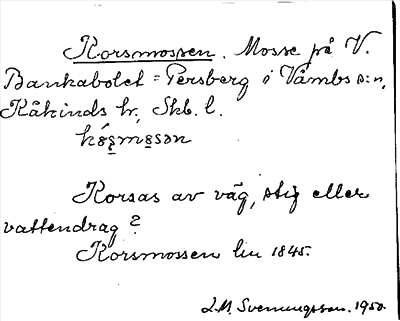 Korsmossen. Mosse på V.
Bankabolet = Persberg i Våmbs s:n,
Kåkinds hr, Skb. l.
Korsas av väg, stig eller
vattendrag?
Korsmossen lm 1845.
L.M. Svenungsson. 1950.